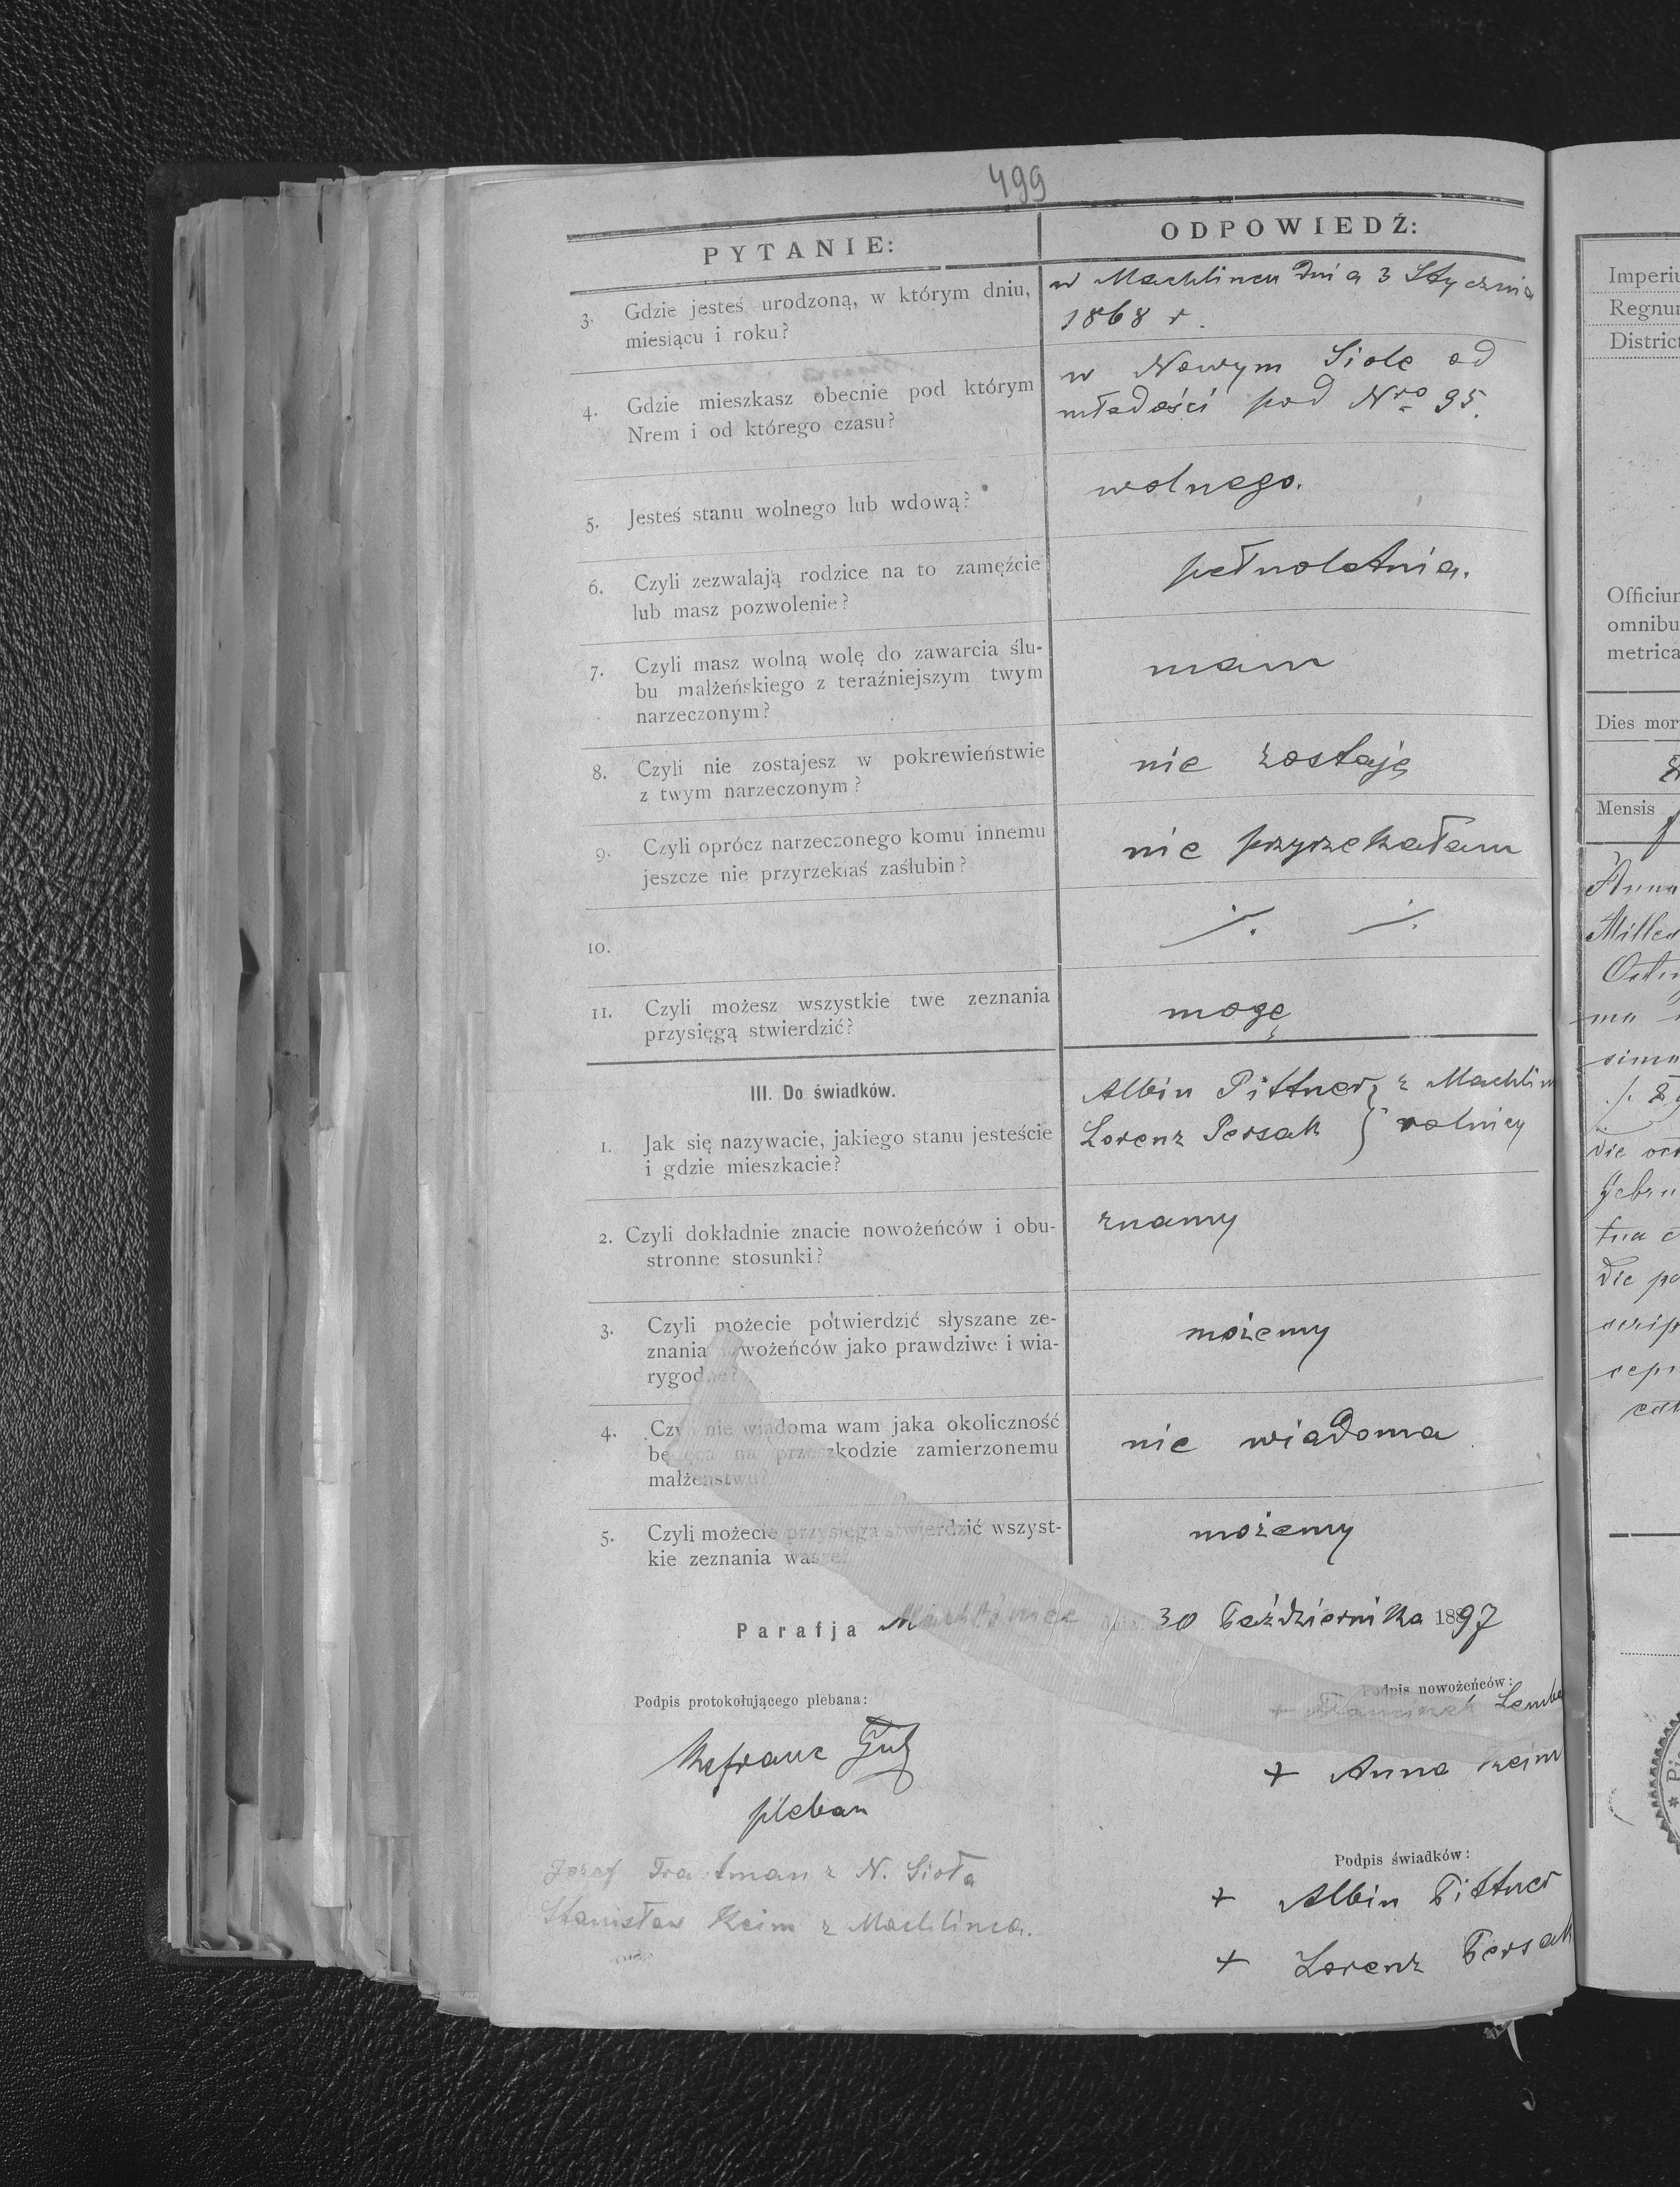 499
PYTANIE:
ODPOWIEDŹ:
3. Gdzie jesteś urodzoną, w którym dniu,
miesiącu i roku?
w Machlincu dnia 3 Stycznia
1868 r.
4. Gdzie mieszkasz obecnie pod którym
Nrem i od którego czasu?
w Nowym Siole od
młodości pod Nro 95.
5. Jesteś stanu wolnego lub wdową?
wolnego.
6. Czyli zezwalają rodzice na to zamęźcie
lub masz pozwolenie?
pełnoletnia.
7. Czyli masz wolną wolę do zawarcia ślu-
bu małżeńskiego z teraźniejszym twym
narzeczonym?
mam
8. Czyli nie zostajesz w pokrewieństwie
z twym narzeczonym?
nie zostaję
9. Czyli oprócz narzeczonego komu innemu
jeszcze nie przyrzekłaś zaślubin?
nie przyrzekałam
10.
11. Czyli możesz wszystkie twe zeznania
przysięgą stwierdzić?
mogę
III. Do świadków.
1. Jak się nazywacie, jakiego stanu jesteście
i gdzie mieszkacie?
Albin Pittner z Machlin
Lorenz Persak } rolnicy
2. Czyli dokładnie znacie nowożeńców i obu-
stronne stosunki?
znamy
3. Czyli możecie potwierdzić słyszane ze-
znania nowożeńców jako prawdziwe i wia-
rygodne?
możemy
4. Czyli nie wiadoma wam jaka okoliczność
będąca na przeszkodzie zamierzonemu
małżeństwu?
nie wiadoma
5. Czyli możecie przysięgą stwierdzić wszyst-
kie zeznania wasze?
możemy
Parafja Machliniec dnia 30 Października 1897
Podpis protokołującego plebana:
Podpis nowożeńców:
+ Franciszek Lemb
+ Anna Keim
pleban
Podpis świadków:
+ Albin Pittner
+ Lorenz Persak
Józef Trautman z N. Sioła
Stanisław Keim z Machlinca.
Imperiu
Regnum
District
Officium
omnibu
metrica
Dies mor
Mensis
Anna